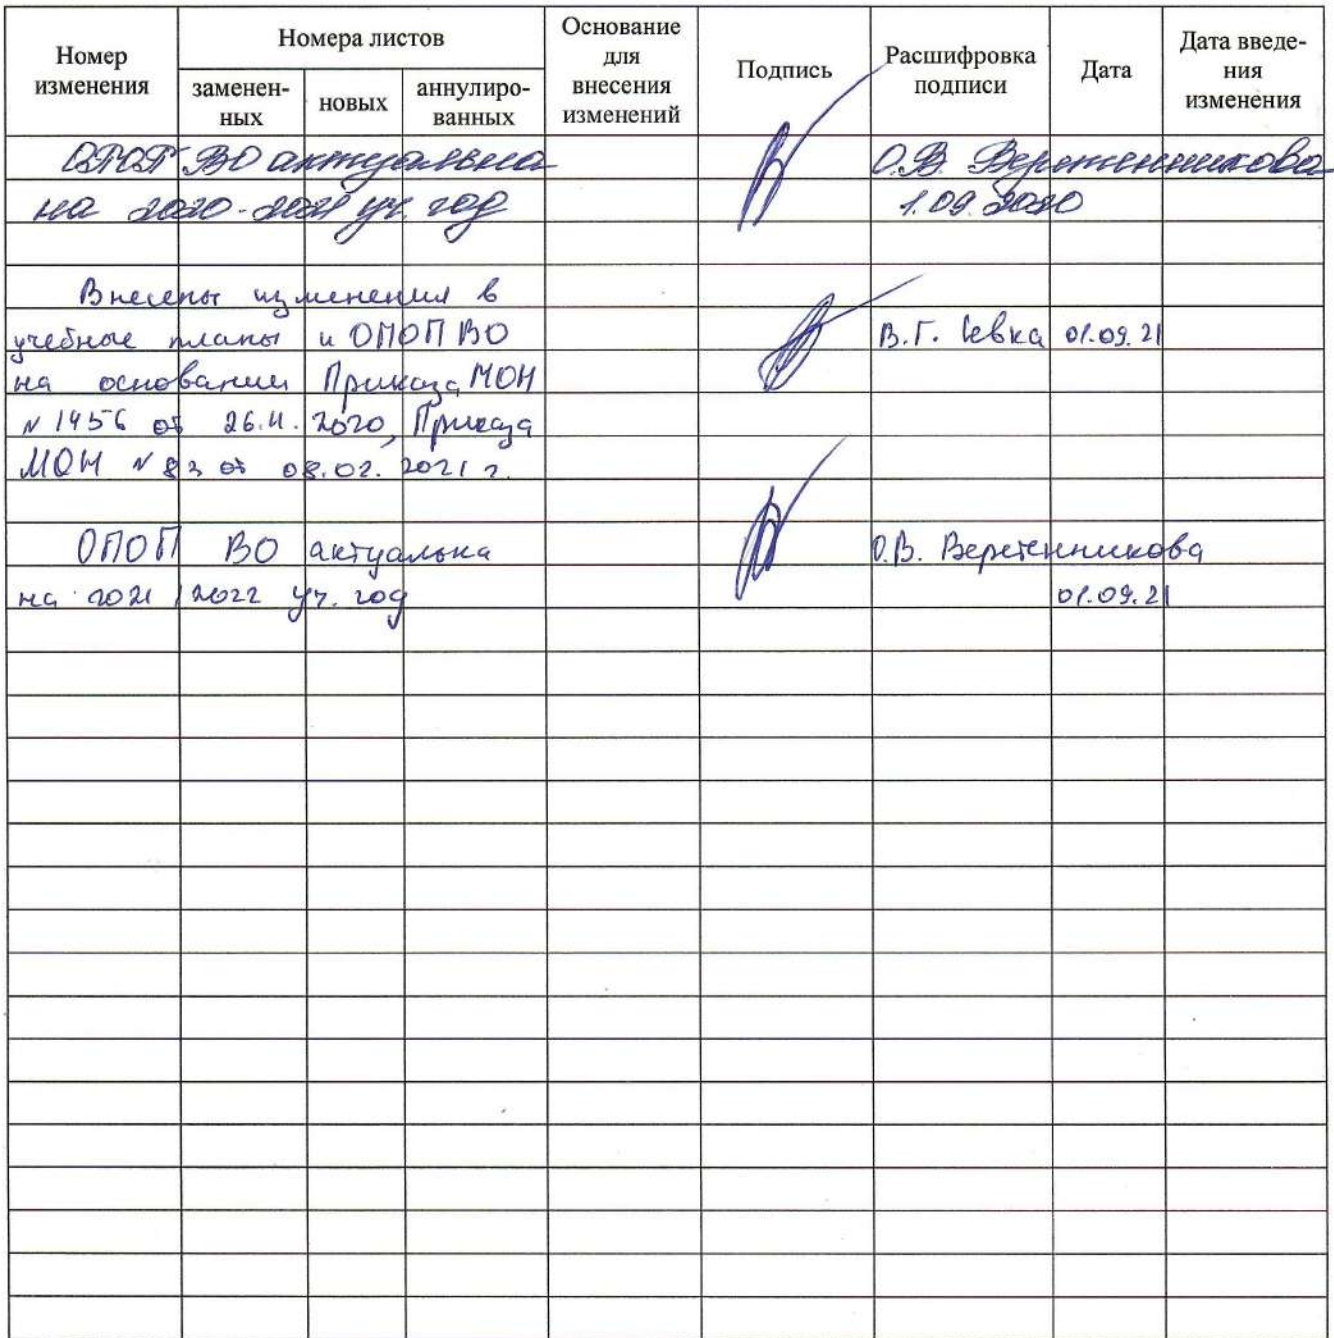 Номер изменения
Номера листов
заменен-
ных
новых
аннулиро-
ванных
Основание
для
внесения
изменений
Подпись
Расшифровка
подписи
Дата
Дата введе-
ния
изменения
ОПОП ВО актуальна
на 2020-2021 уч. год
О.В. Веретенникова
1.09.2020
Внесены изменения в
учебные планы и ОПОП ВО
на основании Приказа МОН
N 1456 от 26.11.2020, Приказа
МОН N 83 от 08.02.2021 г.
В.Г.
01.09.21
ОПОП ВО актуальна
на 2021/2022 уч. год
О.В. Веретенникова
01.09.21